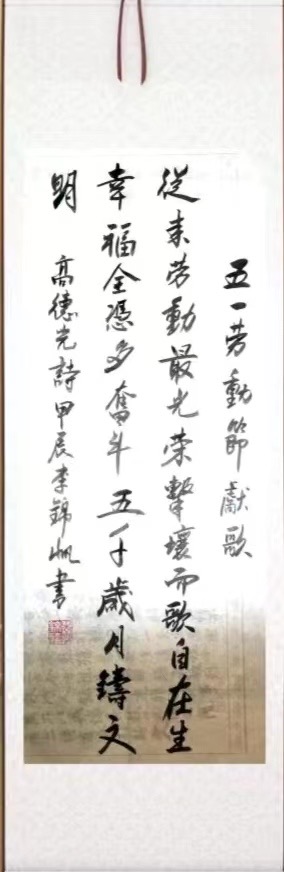 五一劳動節獻歌
從来劳動最光荣擊壤而歌自在生
幸福全憑多奮斗五千歲月鑄文
明 高德光詩甲辰李錦帆書